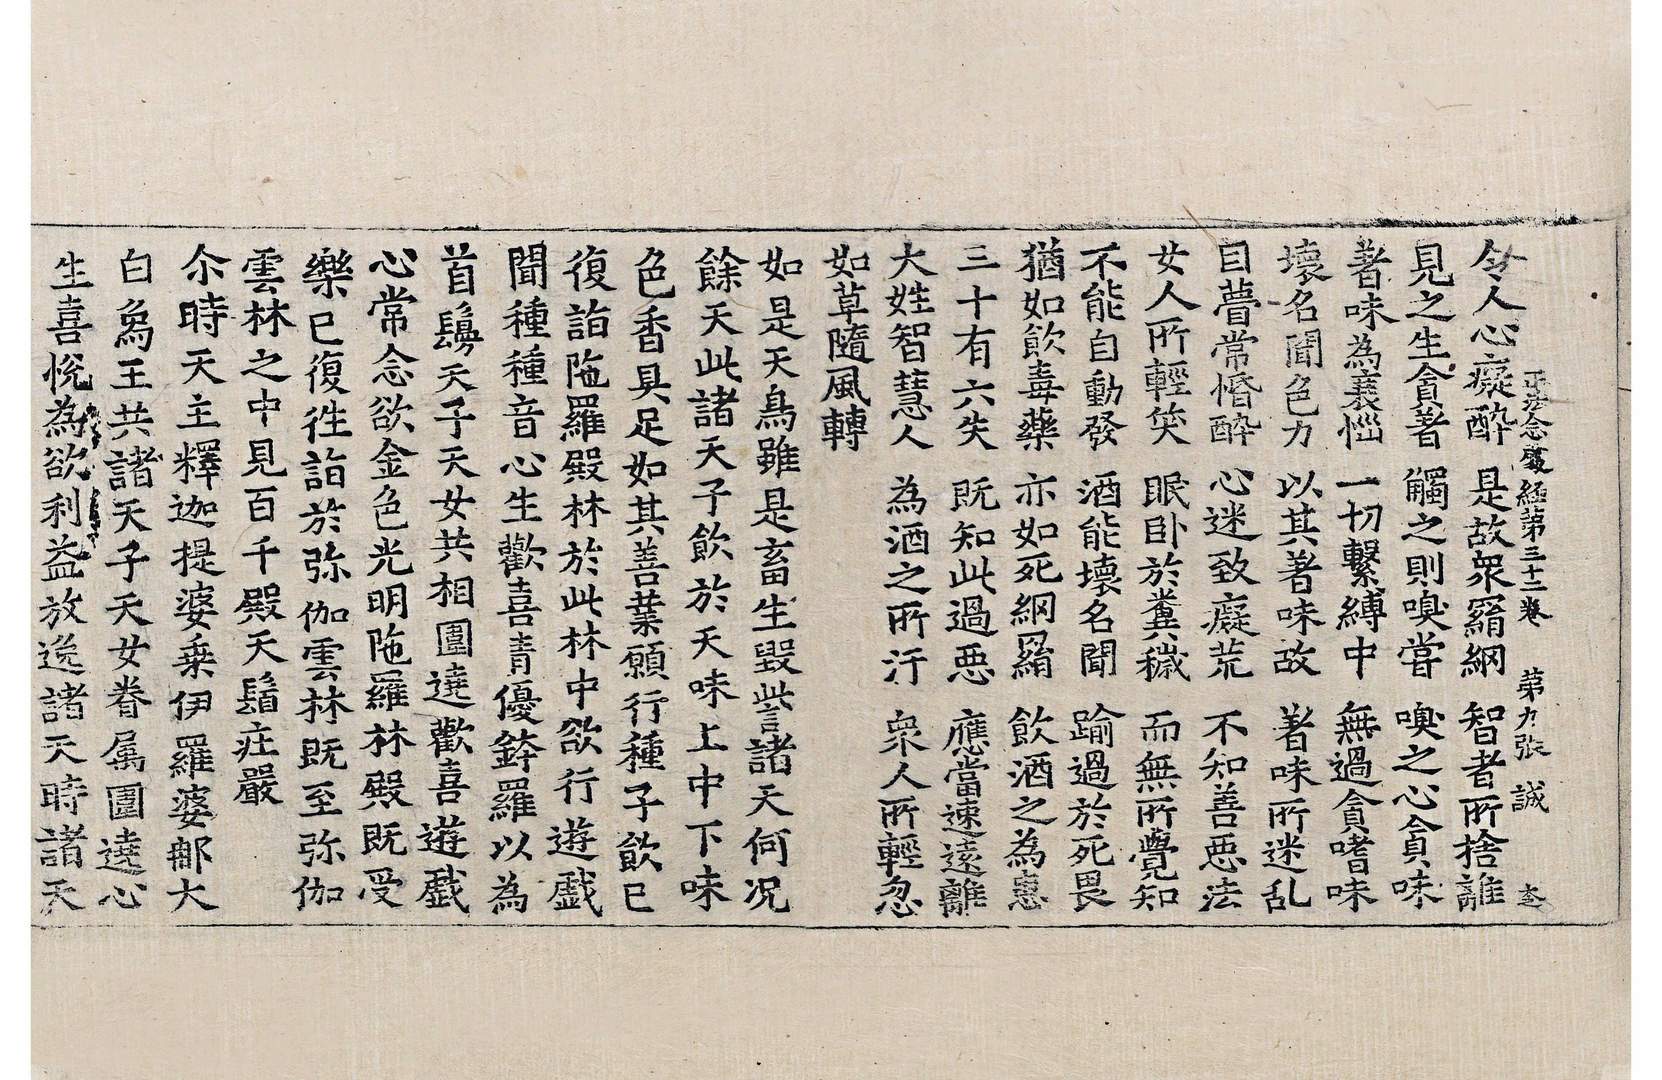 正法念處經第三十二卷　第九張　誠
令人心癡醉　是故眾羂網　智者所捨離
見之生貪著　觸之則嗅嘗　嗅之心貪味
著味為義惱　一切繫縛中　無過貪嗜味
壞名聞色力　以其著味故　著味所迷乱
目瞢常惛醉　心迷致癡荒　不知善惡法
女人所輕笑　眠卧於糞穢　而無所覺知
不能自動發　酒能壞名聞　踰過於死畏
猶如飲毒藥　亦如死網羂　飲酒之為患
三十有六失　既知此過惡　應當速遠離
大姓智慧人　為酒之所汙　眾人所輕忽
如草隨風轉
如是天鳥雖是畜生毀呰諸天何况
餘天此諸天子飲於天味上中下味
色香具足如其善業願行種子飲已
復詣陁羅殿林於此林中欲行遊戲
聞種種音心生歡喜青優鉢羅以為
首鬘天子天女共相圍遶歡喜遊戲
心常念欲金色光明陁羅林殿既受
樂已復往詣於弥伽雲林既至弥伽
雲林之中見百千殿天鬘庄嚴
尒時天主釋迦提婆乗伊羅婆那大
白烏王共諸天子天女眷属圍遶心
生喜悅為欲利益放逸諸天時諸天